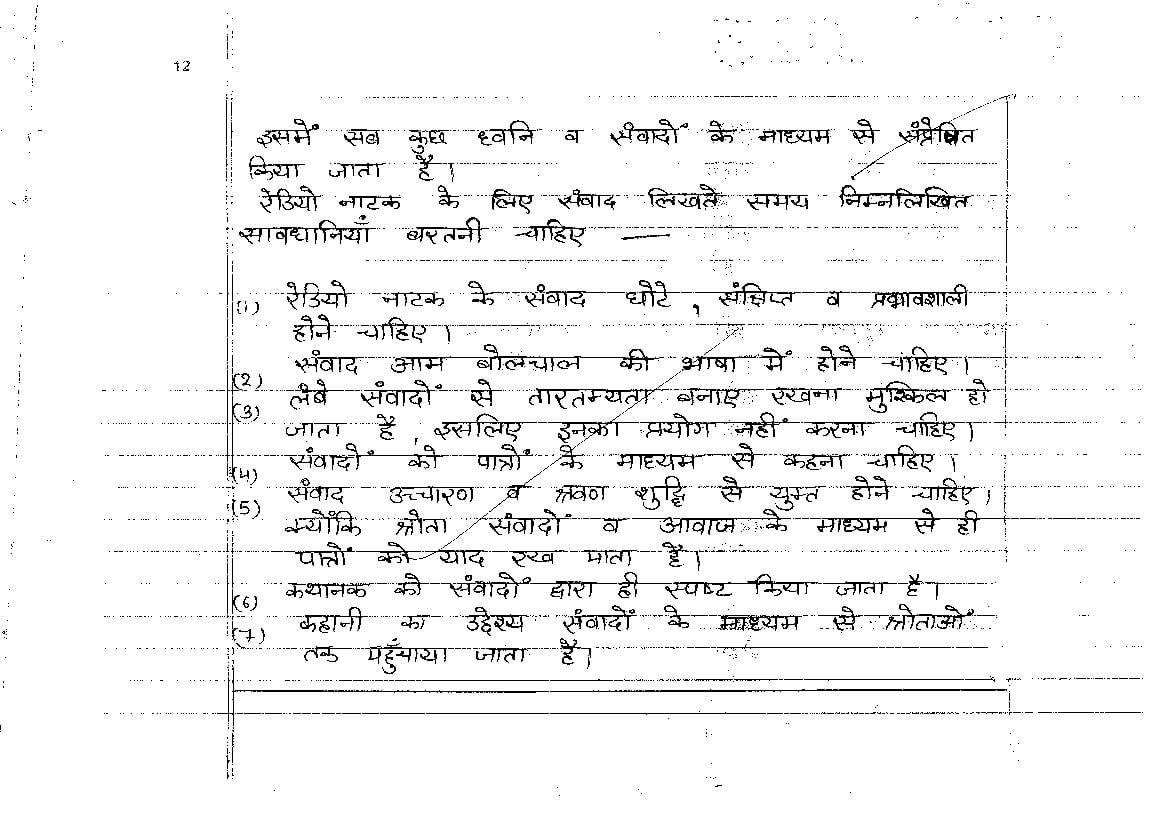 12
इसमें सब कुछ ध्वनि व संवादों के माध्यम से संप्रेषित
किया जाता है।
रेडियो नाटक के लिए संवाद लिखते समय निम्नलिखित
सावधानियाँ बरतनी चाहिए —
(1) रेडियो नाटक के संवाद छोटे, संक्षिप्त व प्रभावशाली
होने चाहिए।
(2) संवाद आम बोलचाल की भाषा में होने चाहिए।
(3) लंबे संवादों से तारतम्यता बनाए रखना मुश्किल हो
जाता है, इसलिए इनका प्रयोग नहीं करना चाहिए।
(4) संवादों को पात्रों के माध्यम से कहना चाहिए।
(5) संवाद उच्चारण व श्रवण शुद्धि से युक्त होने चाहिए।
क्योंकि श्रोता संवादों व आवाज के माध्यम से ही
पात्रों को याद रख पाता है।
(6) कथानक को संवादों द्वारा ही स्पष्ट किया जाता है।
(7) कहानी का उद्देश्य संवादों के माध्यम से श्रोताओं
तक पहुँचाया जाता है।